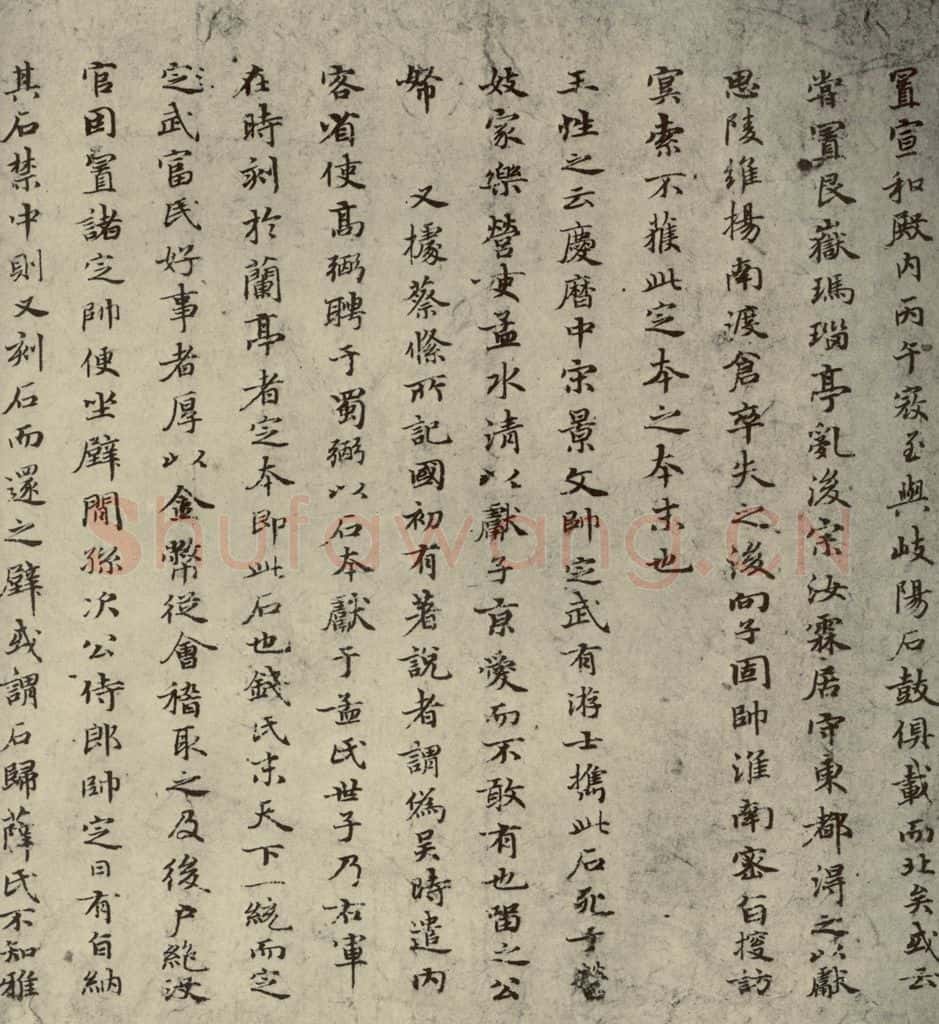 置宣和殿内丙午寇至與岐陽石鼓俱載而北矣或云
嘗置艮嶽瑪瑙亭亂後宗汝霖居守東都得之以獻
思陵維揚南渡倉卒失之後向子固帥淮南密旨搜訪
冥索不獲此定本之本末也
王性之云慶曆中宋景文帥定武有游士攜此石死于
妓家樂營吏孟水清以獻子京愛而不敢有也留之公
帑 又據蔡絛所記國初有著說者謂為吴時遣内
客省使高弼聘于蜀弼以石本獻于孟氏世子乃右軍
在時刻於蘭亭者定本即此石也錢氏末天下一統而定
定武富民好事者厚以金幣從會稽取之及後户絶没
官因置諸定帥便坐壁間孫次公侍郎帥定日有旨納
其石禁中則又刻石而還之壁或謂石歸薛氏不知雅
Shufawang.CN